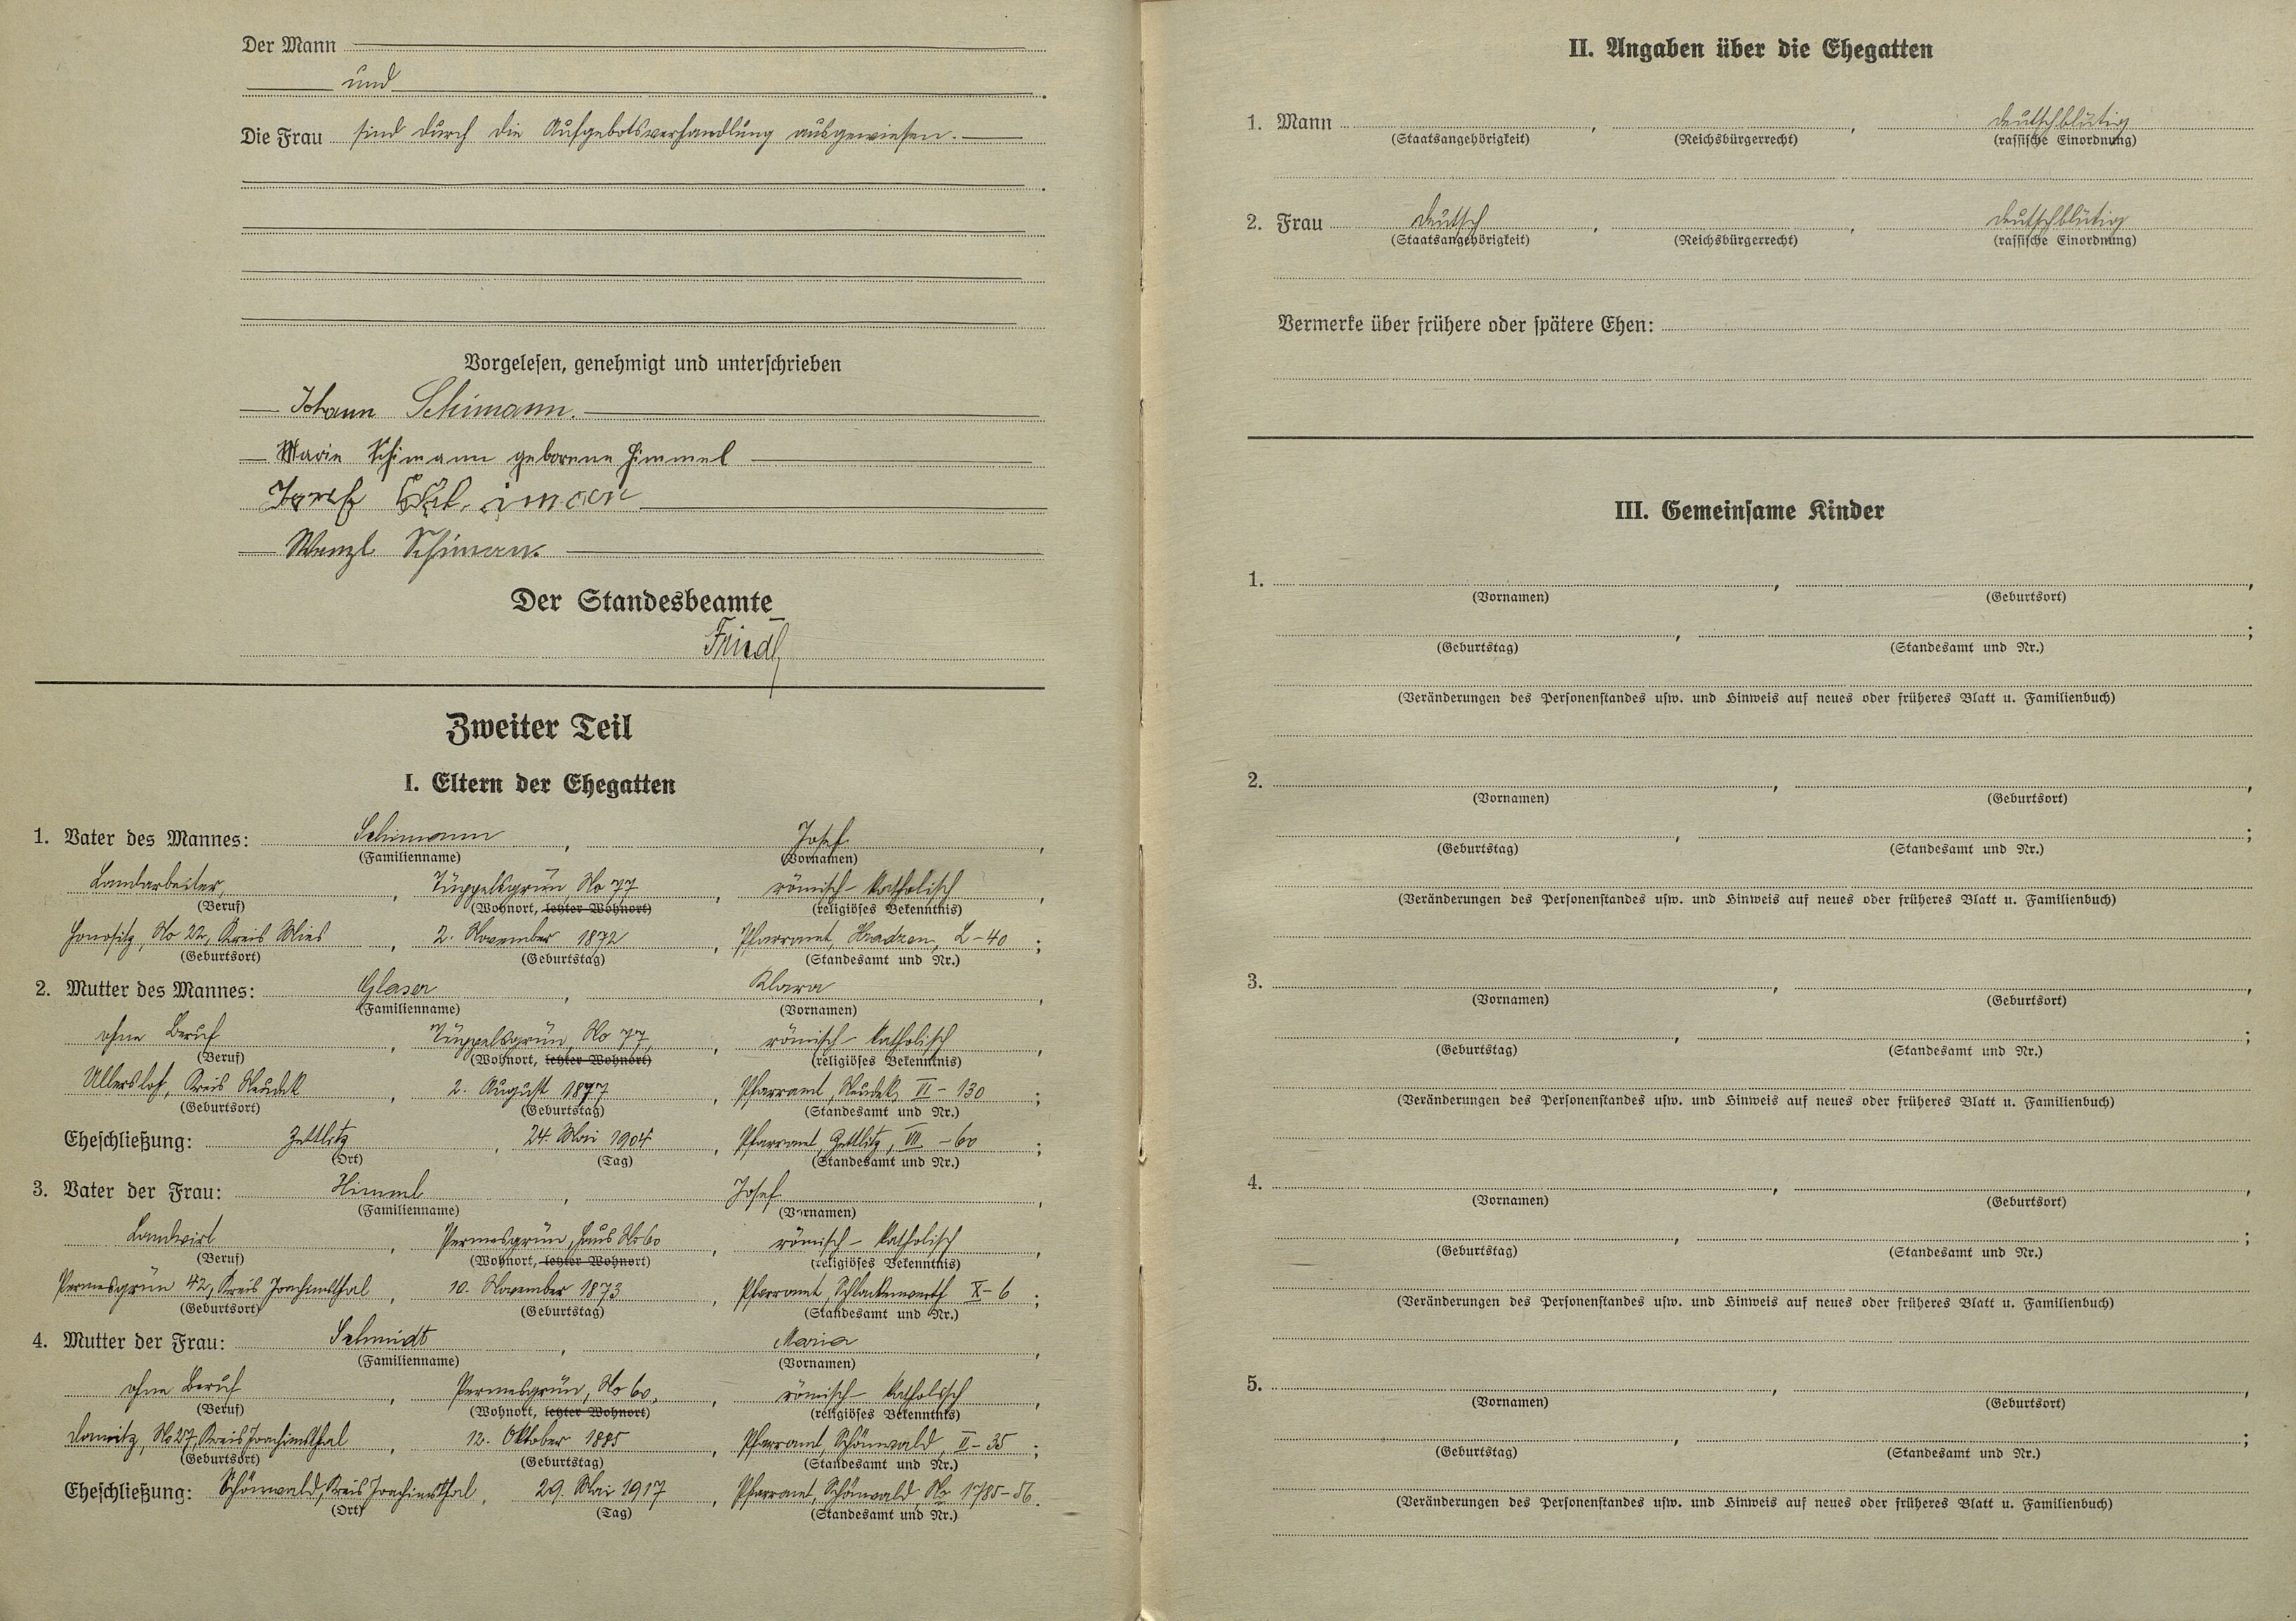 Der Mann
und
Die Frau sind durch die Aufgebotsverhandlung ausgewiesen.
Vorgelesen, genehmigt und unterschrieben
Johann Schimann.
Marie Schimann geborene Himmel
Josef
Wenzl Schimann
Der Standesbeamte
Friedl
Zweiter Teil
I. Eltern der Ehegatten
1. Vater des Mannes: Schimann, Josef,
(Familienname) (Vornamen)
Landarbeiter, Tüppelsgrün, No 77, römisch-katholisch,
(Beruf) (Wohnort, letzter Wohnort) (religiöses Bekenntnis)
Honositz, No 22, Kreis Mies, 2. November 1872, Pfarramt, Hradzen, L-40;
(Geburtsort) (Geburtstag) (Standesamt und Nr.)
2. Mutter des Mannes: Glaser, Klara,
(Familienname) (Vornamen)
ohne Beruf, Tüppelsgrün, No 77, römisch-katholisch,
(Beruf) (Wohnort, letzter Wohnort) (religiöses Bekenntnis)
Ullersloh, Kreis Neudek, 2. August 1877, Pfarramt, Neudek, VI-130;
(Geburtsort) (Geburtstag) (Standesamt und Nr.)
Eheschließung: Zettlitz, 24. Mai 1904, Pfarramt, Zettlitz, VIII-60;
(Ort) (Tag) (Standesamt und Nr.)
3. Vater der Frau: Himml, Josef,
(Familienname) (Vornamen)
Landwirt, Permesgrün, Haus No 60, römisch-katholisch,
(Beruf) (Wohnort, letzter Wohnort) (religiöses Bekenntnis)
Permesgrün 42, Kreis Joachimsthal, 10. November 1873, Pfarramt, Schlackenwerth X-6;
(Geburtsort) (Geburtstag) (Standesamt und Nr.)
4. Mutter der Frau: Schmidt, Maria,
(Familienname) (Vornamen)
ohne Beruf, Permesgrün, No 60, römisch-katholisch,
(Beruf) (Wohnort, letzter Wohnort) (religiöses Bekenntnis)
Damitz, No 27, Kreis Joachimsthal, 12. Oktober 1885, Pfarramt, Schönwald, II-35;
(Geburtsort) (Geburtstag) (Standesamt und Nr.)
Eheschließung: Schönwald, Kreis Joachimsthal, 29. Mai 1917, Pfarramt, Schönwald, No 1785-56.
(Ort) (Tag) (Standesamt und Nr.)
II. Angaben über die Ehegatten
1. Mann , , deutschblütig
(Staatsangehörigkeit) (Reichsbürgerrecht) (rassische Einordnung)
2. Frau deutsch, , deutschblütig
(Staatsangehörigkeit) (Reichsbürgerrecht) (rassische Einordnung)
Vermerke über frühere oder spätere Ehen:
III. Gemeinsame Kinder
1. , ,
(Vornamen) (Geburtsort)
, ;
(Geburtstag) (Standesamt und Nr.)
(Veränderungen des Personenstandes usw. und Hinweis auf neues oder früheres Blatt u. Familienbuch)
2. , ,
(Vornamen) (Geburtsort)
, ;
(Geburtstag) (Standesamt und Nr.)
(Veränderungen des Personenstandes usw. und Hinweis auf neues oder früheres Blatt u. Familienbuch)
3. , ,
(Vornamen) (Geburtsort)
, ;
(Geburtstag) (Standesamt und Nr.)
(Veränderungen des Personenstandes usw. und Hinweis auf neues oder früheres Blatt u. Familienbuch)
4. , ,
(Vornamen) (Geburtsort)
, ;
(Geburtstag) (Standesamt und Nr.)
(Veränderungen des Personenstandes usw. und Hinweis auf neues oder früheres Blatt u. Familienbuch)
5. , ,
(Vornamen) (Geburtsort)
, ;
(Geburtstag) (Standesamt und Nr.)
(Veränderungen des Personenstandes usw. und Hinweis auf neues oder früheres Blatt u. Familienbuch)